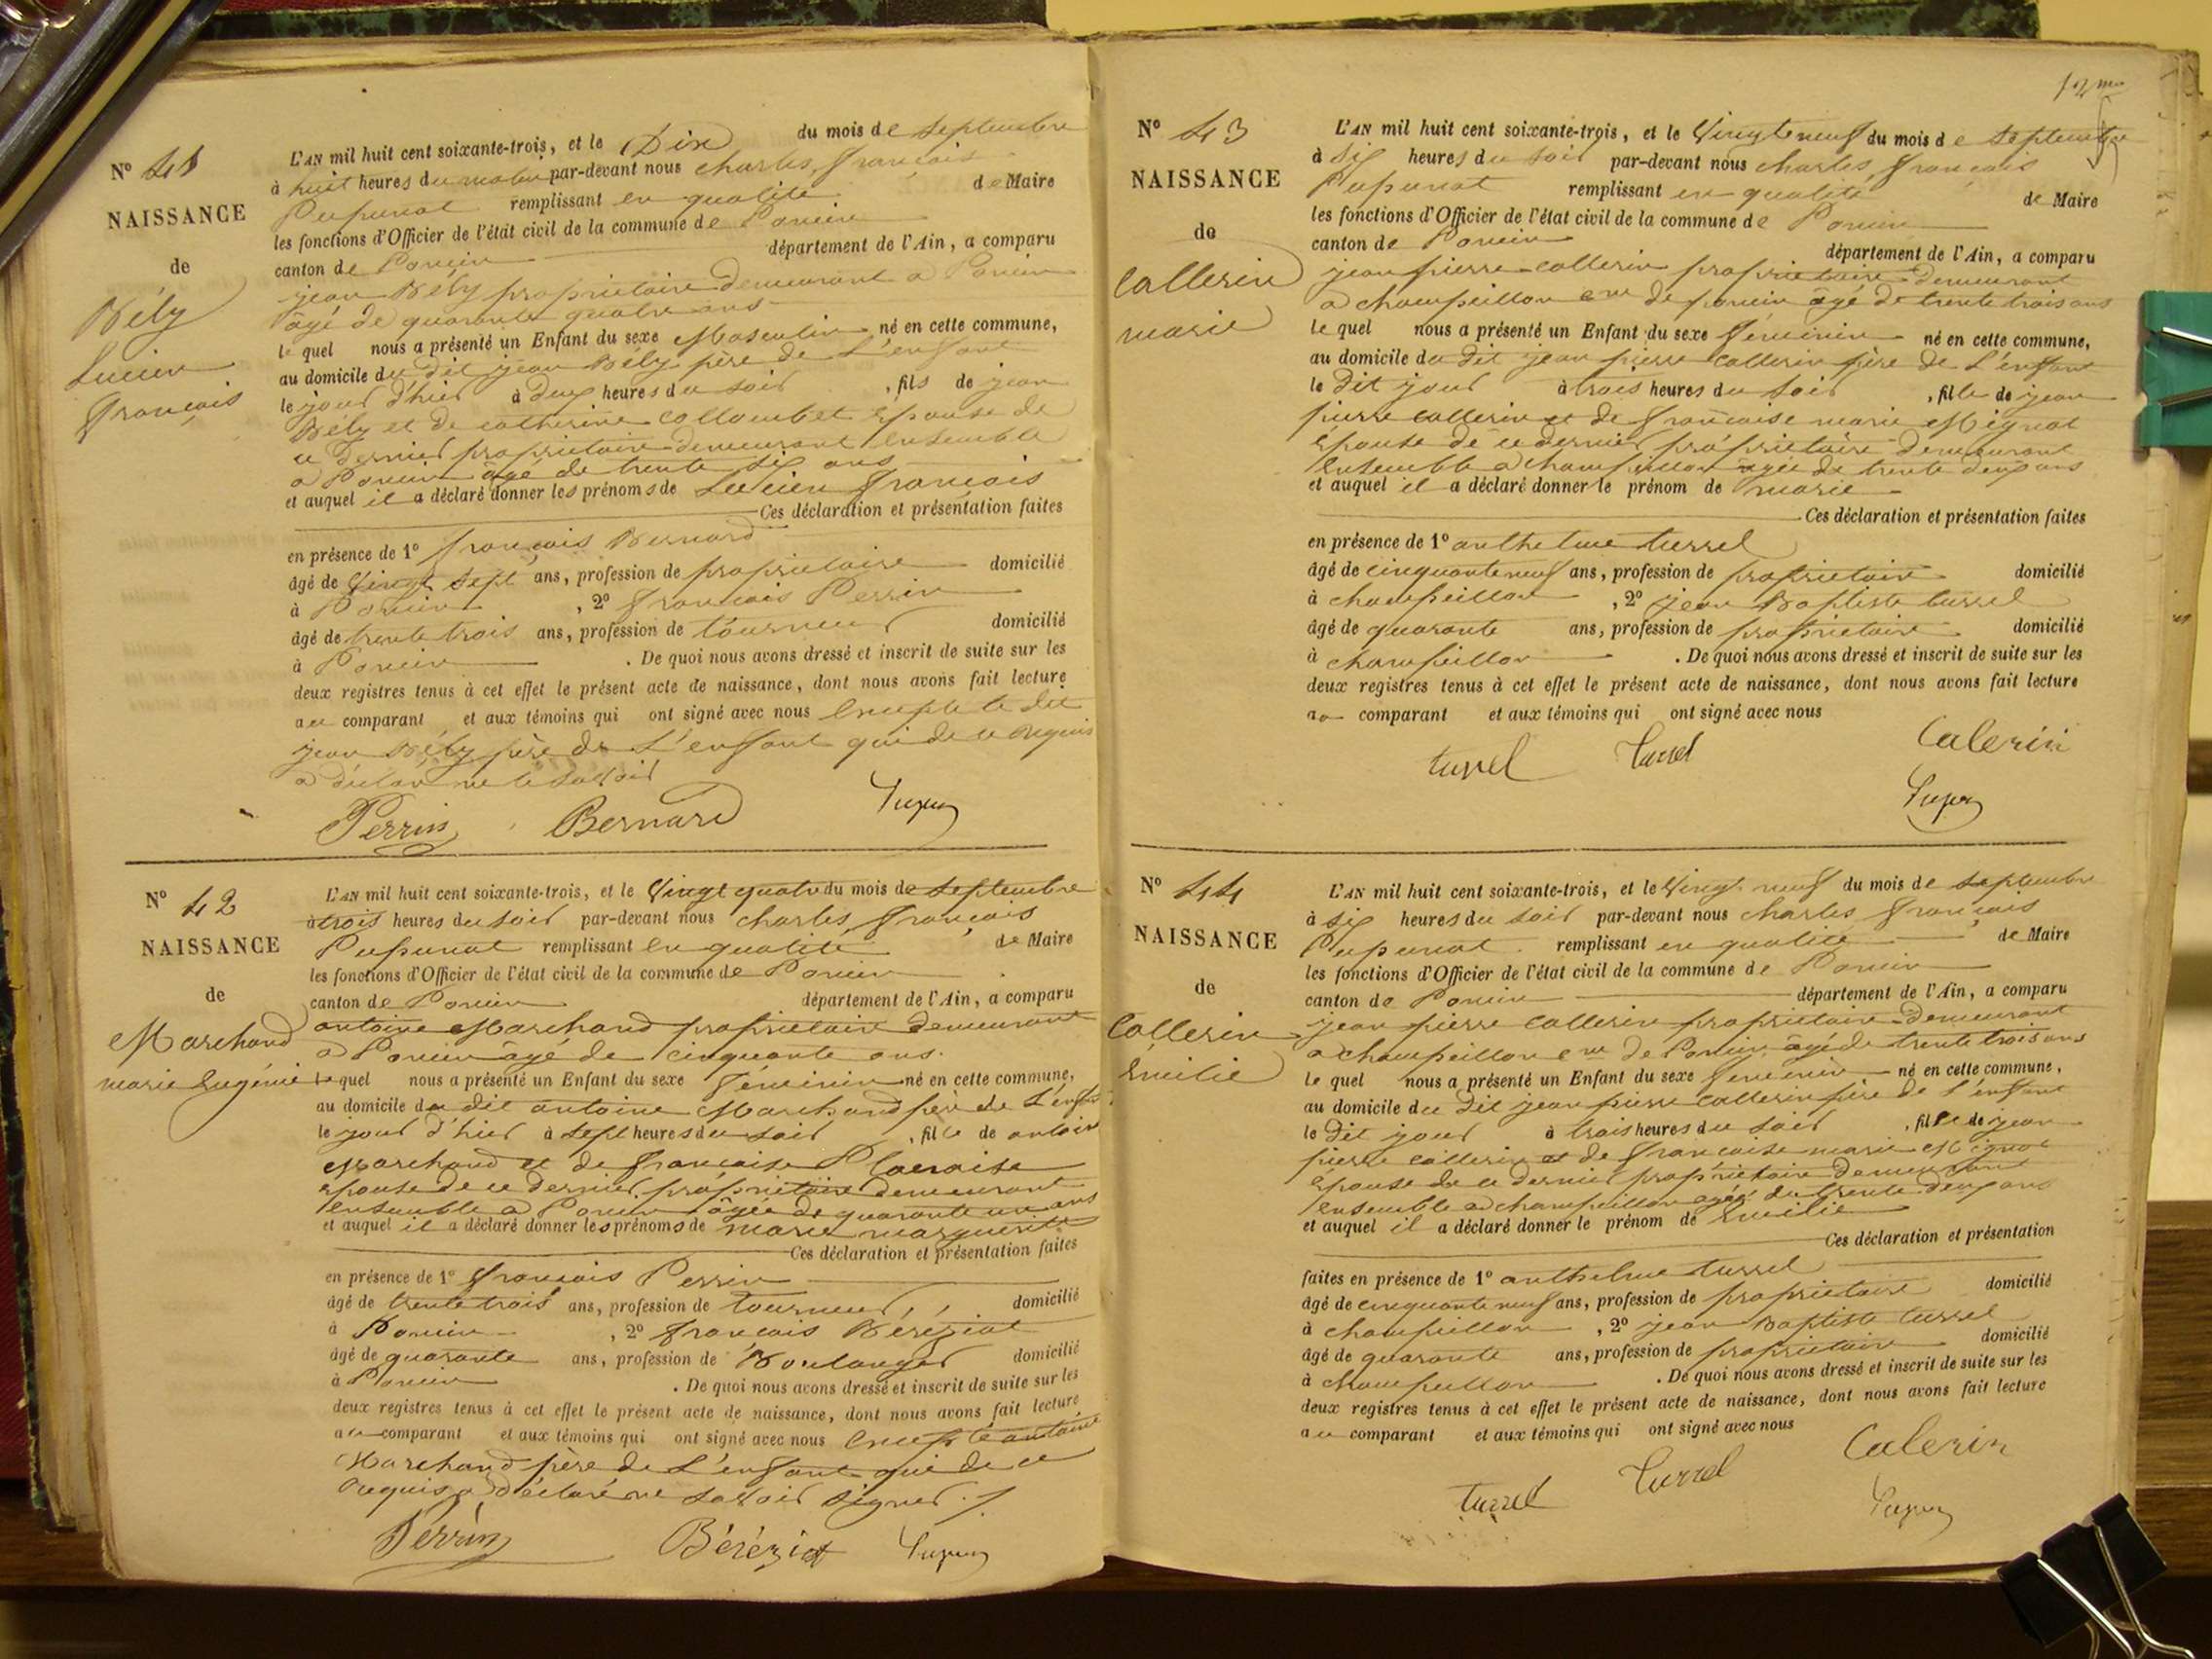 N° 41
NAISSANCE
de
Bély
Lucien
François
L'AN mil huit cent soixante-trois, et le Dix du mois de Septembre
à huit heures du matin par-devant nous charles, françois
Pupunat remplissant en qualité de Maire
les fonctions d'Officier de l'état civil de la commune de Poncin
canton de Poncin département de l'Ain, a comparu
jean Bély propriétaire demeurant a Poncin
âgé de quarante quatre ans
le quel nous a présenté un Enfant du sexe Masculin né en cette commune,
au domicile du dit jean Bély père de L'enfant
le jour d'hier à deux heures du soir , fils de jean
Bély et de catherine collombet épouse de
ce dernier propriétaire demeurant ensemble
a Poncin âgé de trente six ans
et auquel il a déclaré donner les prénoms de Lucien françois
Ces déclaration et présentation faites
en présence de 1° françois Bernard
âgé de Vingt sept ans, profession de propriétaire domicilié
à Poncin , 2° françois Perrin
âgé de trente trois ans, profession de tourneur domicilié
à Poncin . De quoi nous avons dressé et inscrit de suite sur les
deux registres tenus à cet effet le présent acte de naissance, dont nous avons fait lecture
au comparant et aux témoins qui ont signé avec nous Excepté le dit
jean Bély père de L'enfant qui de ce Requis
a déclaré ne le savoir
Perrin Bernard
N° 42
NAISSANCE
de
Marchand
marie Eugénie
L'AN mil huit cent soixante-trois, et le Vingt quatre du mois de Septembre
à trois heures du soir par-devant nous charles, françois
Pupunat remplissant en qualité de Maire
les fonctions d'Officier de l'état civil de la commune de Poncin
canton de Poncin département de l'Ain, a comparu
antoine Marchand propriétaire demeurant
a Poncin âgé de cinquante ans.
le quel nous a présenté un Enfant du sexe féminin né en cette commune,
au domicile du dit antoine Marchand père de L'enfant
le jour d'hier à sept heures du soir , fille de antoine
Marchand et de françoise
épouse de ce dernier propriétaire demeurant
ensemble a Poncin âgée de quarante un ans
et auquel il a déclaré donner les prénoms de marie marguerite
Ces déclaration et présentation faites
en présence de 1° françois Perrin
âgé de trente trois ans, profession de tourneur, domicilié
à Poncin , 2° françois Béréziat
âgé de quarante ans, profession de Boulanger domicilié
à Poncin . De quoi nous avons dressé et inscrit de suite sur les
deux registres tenus à cet effet le présent acte de naissance, dont nous avons fait lecture
au comparant et aux témoins qui ont signé avec nous Excepté antoine
Marchand père de L'enfant qui de ce
Requis a déclaré ne savoir signer ./
Perrin Béréziat
12me
N° 43
NAISSANCE
de
Collerin
marie
L'AN mil huit cent soixante-trois, et le Vingt neuf du mois de Septembre
à six heures du soir par-devant nous charles, françois
Pupunat remplissant en qualité de Maire
les fonctions d'Officier de l'état civil de la commune de Poncin
canton de Poncin département de l'Ain, a comparu
jean pierre collerin propriétaire demeurant
a champeillon cne de poncin âgé de trente trois ans
le quel nous a présenté un Enfant du sexe féminin né en cette commune,
au domicile du dit jean pierre collerin père de L'enfant
le dit jour à trois heures du soir , fille de jean
pierre collerin et de françoise marie Mignot
épouse de ce dernier propriétaire demeurant
ensemble a champeillon agée de trente deux ans
et auquel il a déclaré donner le prénom de marie
Ces déclaration et présentation faites
en présence de 1° anthelme turrel
âgé de cinquante neuf ans, profession de propriétaire domicilié
à champeillon , 2° jean Baptiste turrel
âgé de quarante ans, profession de propriétaire domicilié
à champeillon . De quoi nous avons dressé et inscrit de suite sur les
deux registres tenus à cet effet le présent acte de naissance, dont nous avons fait lecture
au comparant et aux témoins qui ont signé avec nous
turrel turrel Calerin
N° 44
NAISSANCE
de
Collerin
Emilie
L'AN mil huit cent soixante-trois, et le Vingt neuf du mois de Septembre
à six heures du soir par-devant nous charles françois
Pupunat remplissant en qualité de Maire
les fonctions d'Officier de l'état civil de la commune de Poncin
canton de Poncin département de l'Ain, a comparu
jean pierre collerin propriétaire demeurant
a champeillon cne de Poncin âgé de trente trois ans
le quel nous a présenté un Enfant du sexe feminin né en cette commune,
au domicile du dit jean pierre collerin père de l'enfant
le dit jour à trois heures du soir , fille de jean
pierre collerin et de françoise marie Mignot
épouse de ce dernier propriétaire demeurant
ensemble a champeillon agée de trente deux ans
et auquel il a déclaré donner le prénom de Emilie
Ces déclaration et présentation
faites en présence de 1° anthelme turrel
âgé de cinquante neuf ans, profession de propriétaire domicilié
à champeillon , 2° jean Baptiste turrel
âgé de quarante ans, profession de propriétaire domicilié
à champeillon . De quoi nous avons dressé et inscrit de suite sur les
deux registres tenus à cet effet le présent acte de naissance, dont nous avons fait lecture
au comparant et aux témoins qui ont signé avec nous
turrel turrel Calerin